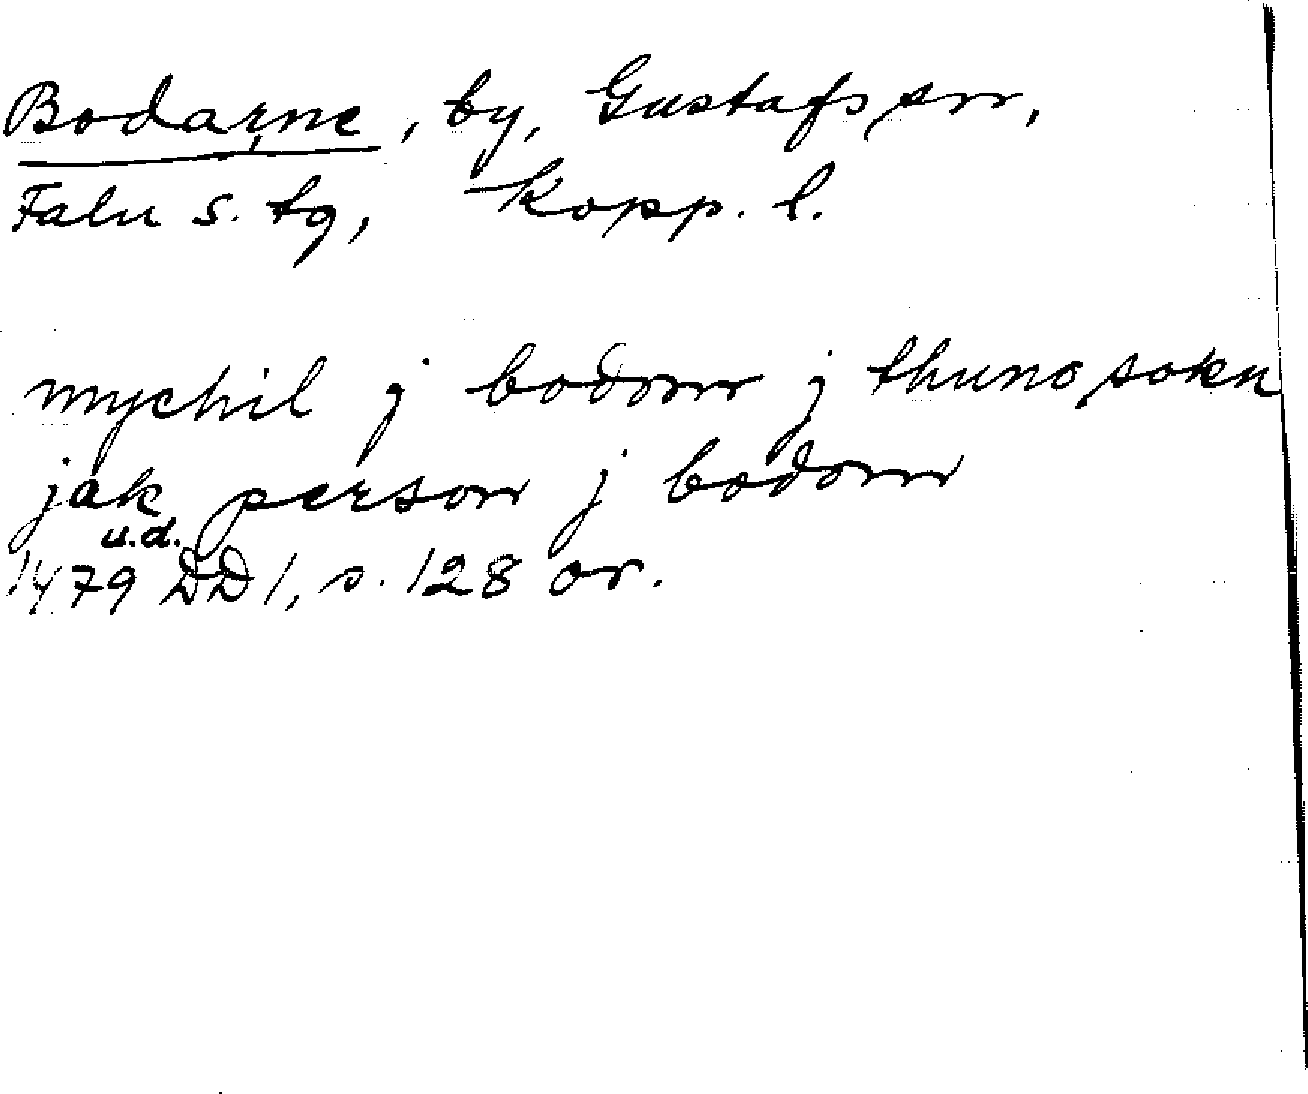 Bodarne, by, Gustafs sn,
Falu s. tg, Kopp. l.
mychil j bodom j thuno sokn
jak person j bodom
u.d.
1479 DD 1, s. 128 or.